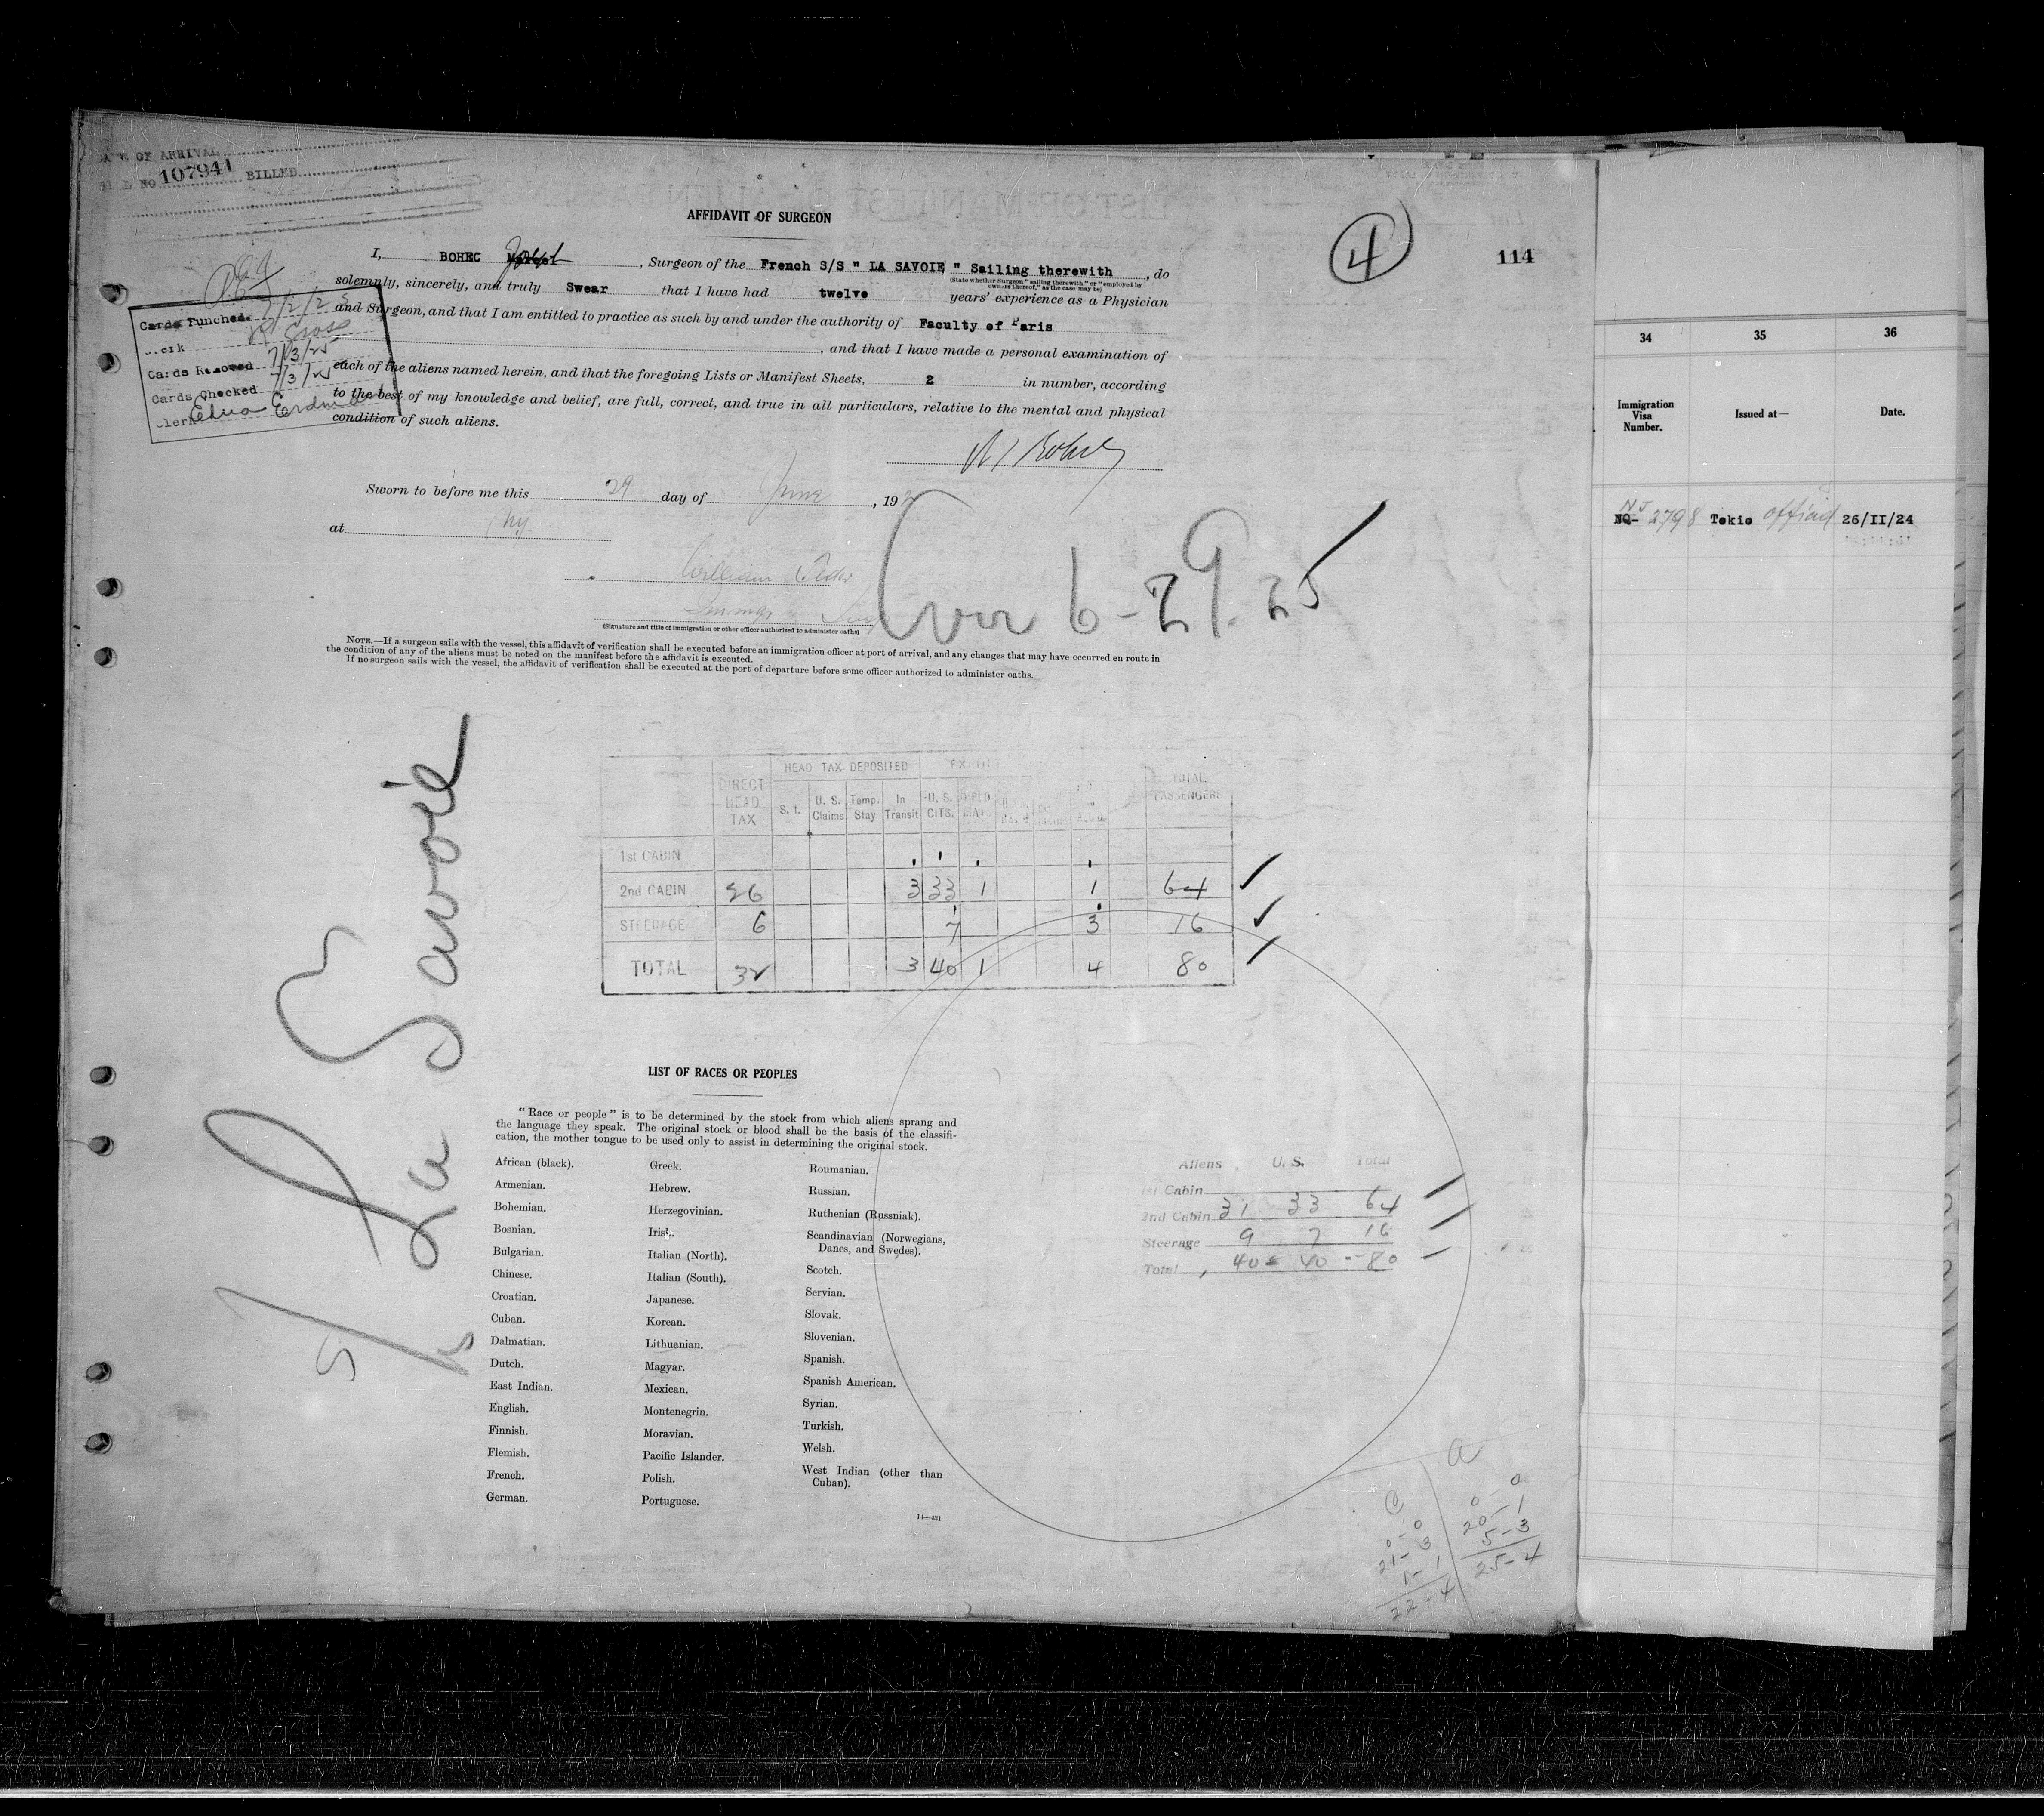 DATE OF ARRIVAL
BILL NO. 107941 BILLED
AFFIDAVIT OF SURGEON
4
114
I, BOHEC Marcel, Surgeon of the French S/S " LA SAVOIE " Sailing therewith, do
(State whether Surgeon "sailing therewith" or "employed by
owners thereof," as the case may be)
solemnly, sincerely, and truly Swear that I have had twelve years' experience as a Physician
and Surgeon, and that I am entitled to practice as such by and under the authority of Faculty of Paris
, and that I have made a personal examination of
each of the aliens named herein, and that the foregoing Lists or Manifest Sheets, 2 in number, according
to the best of my knowledge and belief, are full, correct, and true in all particulars, relative to the mental and physical
condition of such aliens.
Cards Punched 7/2/25
Clerk
Cards Removed 7/3/25
Cards Checked 7/3/25
Clerk Edna
Sworn to before me this 29 day of June, 192
at NY.
William
(Signature and title of immigration or other officer authorized to administer oaths)
6-29.25
NOTE.—If a surgeon sails with the vessel, this affidavit of verification shall be executed before an immigration officer at port of arrival, and any changes that may have occurred en route in
the condition of any of the aliens must be noted on the manifest before the affidavit is executed.
If no surgeon sails with the vessel, the affidavit of verification shall be executed at the port of departure before some officer authorized to administer oaths.
S/S La Savoie
DIRECT HEAD TAX
HEAD TAX DEPOSITED
S. I. U. S. Claims Temp. Stay In Transit U. S. CITS.
TOTAL PASSENGERS
1st CABIN
2nd CABIN 26 3 33 1 1 64
STEERAGE 6 7 3 16
TOTAL 32 3 40 1 4 80
LIST OF RACES OR PEOPLES
"Race or people" is to be determined by the stock from which aliens sprang and
the language they speak. The original stock or blood shall be the basis of the classifi-
cation, the mother tongue to be used only to assist in determining the original stock.
African (black).
Armenian.
Bohemian.
Bosnian.
Bulgarian.
Chinese.
Croatian.
Cuban.
Dalmatian.
Dutch.
East Indian.
English.
Finnish.
Flemish.
French.
German.
Greek.
Hebrew.
Herzegovinian.
Irish.
Italian (North).
Italian (South).
Japanese.
Korean.
Lithuanian.
Magyar.
Mexican.
Montenegrin.
Moravian.
Pacific Islander.
Polish.
Portuguese.
Roumanian.
Russian.
Ruthenian (Russniak).
Scandinavian (Norwegians,
Danes, and Swedes).
Scotch.
Servian.
Slovak.
Slovenian.
Spanish.
Spanish American.
Syrian.
Turkish.
Welsh.
West Indian (other than
Cuban).
14—431
Aliens U. S. Total
1st Cabin
2nd Cabin 31 33 64
Steerage 9 7 16
Total 40 - 40 - 80
C
0-0
21-3
1-1
22-4
a
0-0
20-1
5-3
25-4
34 35 36
Immigration
Visa
Number.
Issued at—
Date.
NQ- 2798 Tokio official 26/II/24